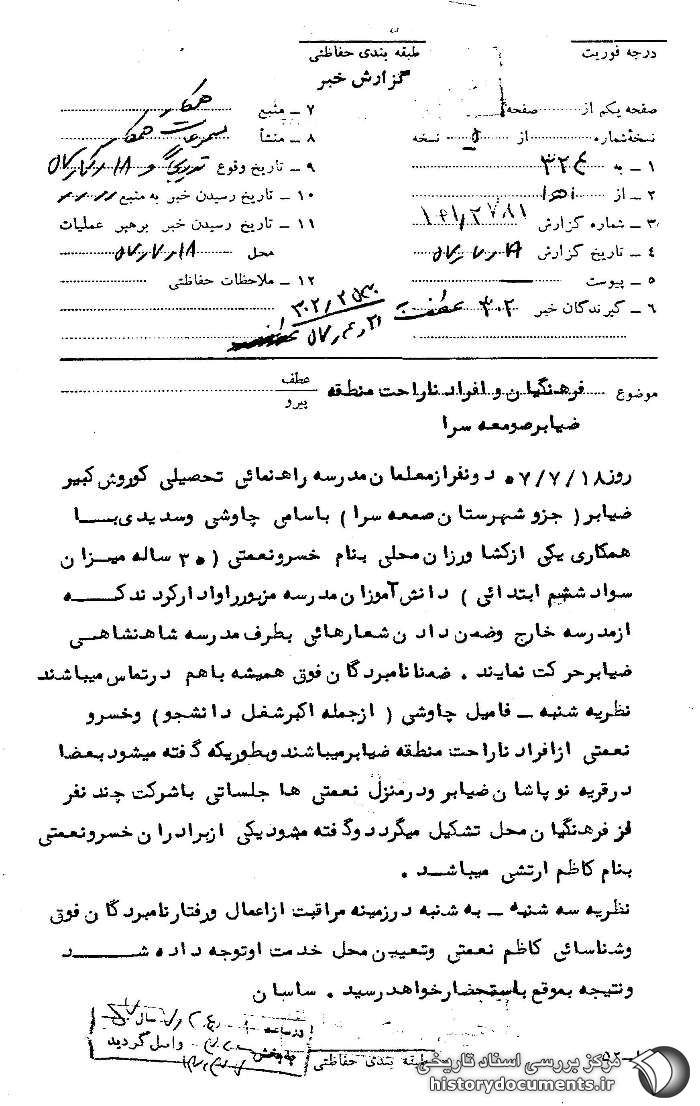 درجه فوریت
طبقه بندی حفاظتی
گزارش خبر
صفحه یکم از صفحه
نسخهٔ شماره از ۵ نسخه
۱ ـ به ۳۲۴
۲ ـ از
۳ ـ شماره گزارش
۴ ـ تاریخ گزارش
۵ ـ پیوست
۶ ـ گیرندگان خبر ۳۰۲
۷ ـ منبع همکار
۸ ـ منشأ مسموعات همکار
۹ ـ تاریخ وقوع
۱۰ ـ تاریخ رسیدن خبر به منبع
۱۱ ـ تاریخ رسیدن خبر برهبر عملیات
محل ۵۷٫۷٫۱۸
۱۲ ـ ملاحظات حفاظتی
موضوع فرهنگیان و افراد ناراحت منطقه
ضیابر صومعه سرا
عطف
پیرو
روز ۵۷/۷/۱۸ دونفر از معلمان مدرسه راهنمائی تحصیلی کوروش کبیر
ضیابر ( جزو شهرستان صمعه سرا ) باسامی چاوشی وسدیدی بـا
همکاری یکی ازکشاورزان محلی بنام خسرونعمتی ( ۳۰ ساله میـزان
سواد ششم ابتدائی ) دانش آموزان مدرسه مزبور را وادار کردند کـه
از مدرسه خارج وضمن دادن شعارهائی بطرف مدرسه شاهنشاهـی
ضیابر حرکت نمایند . ضمنا نامبردگان فوق همیشه باهم درتماس میباشند
نظریه شنبه ـ فامیل چاوشی ( ازجمله اکبرشغل دانشجو ) وخسرو
نعمتی ازافراد ناراحت منطقه ضیابرمیباشند وبطوریکه گفته میشود بعضا
درقریه نوپاشان ضیابر ودرمنزل نعمتی ها جلساتی باشرکت چند نفر
از فرهنگیان محل تشکیل میگردد وگفته میشود یکی ازبرادران خسرونعمتی
بنام کاظم ارتشی میباشـد .
نظریه سه شنبه ـ به شنبه درزمینه مراقبت ازاعمال ورفتارنامبردگان فوق
وشناسائی کاظم نعمتی وتعیین محل خدمت اوتوجه داده شــد
ونتیجه بموقع باستحضارخواهد رسید . ساسان
واصل گردید
طبقه بندی حفاظتی
مرکز بررسی اسناد تاریخی
historydocuments.ir